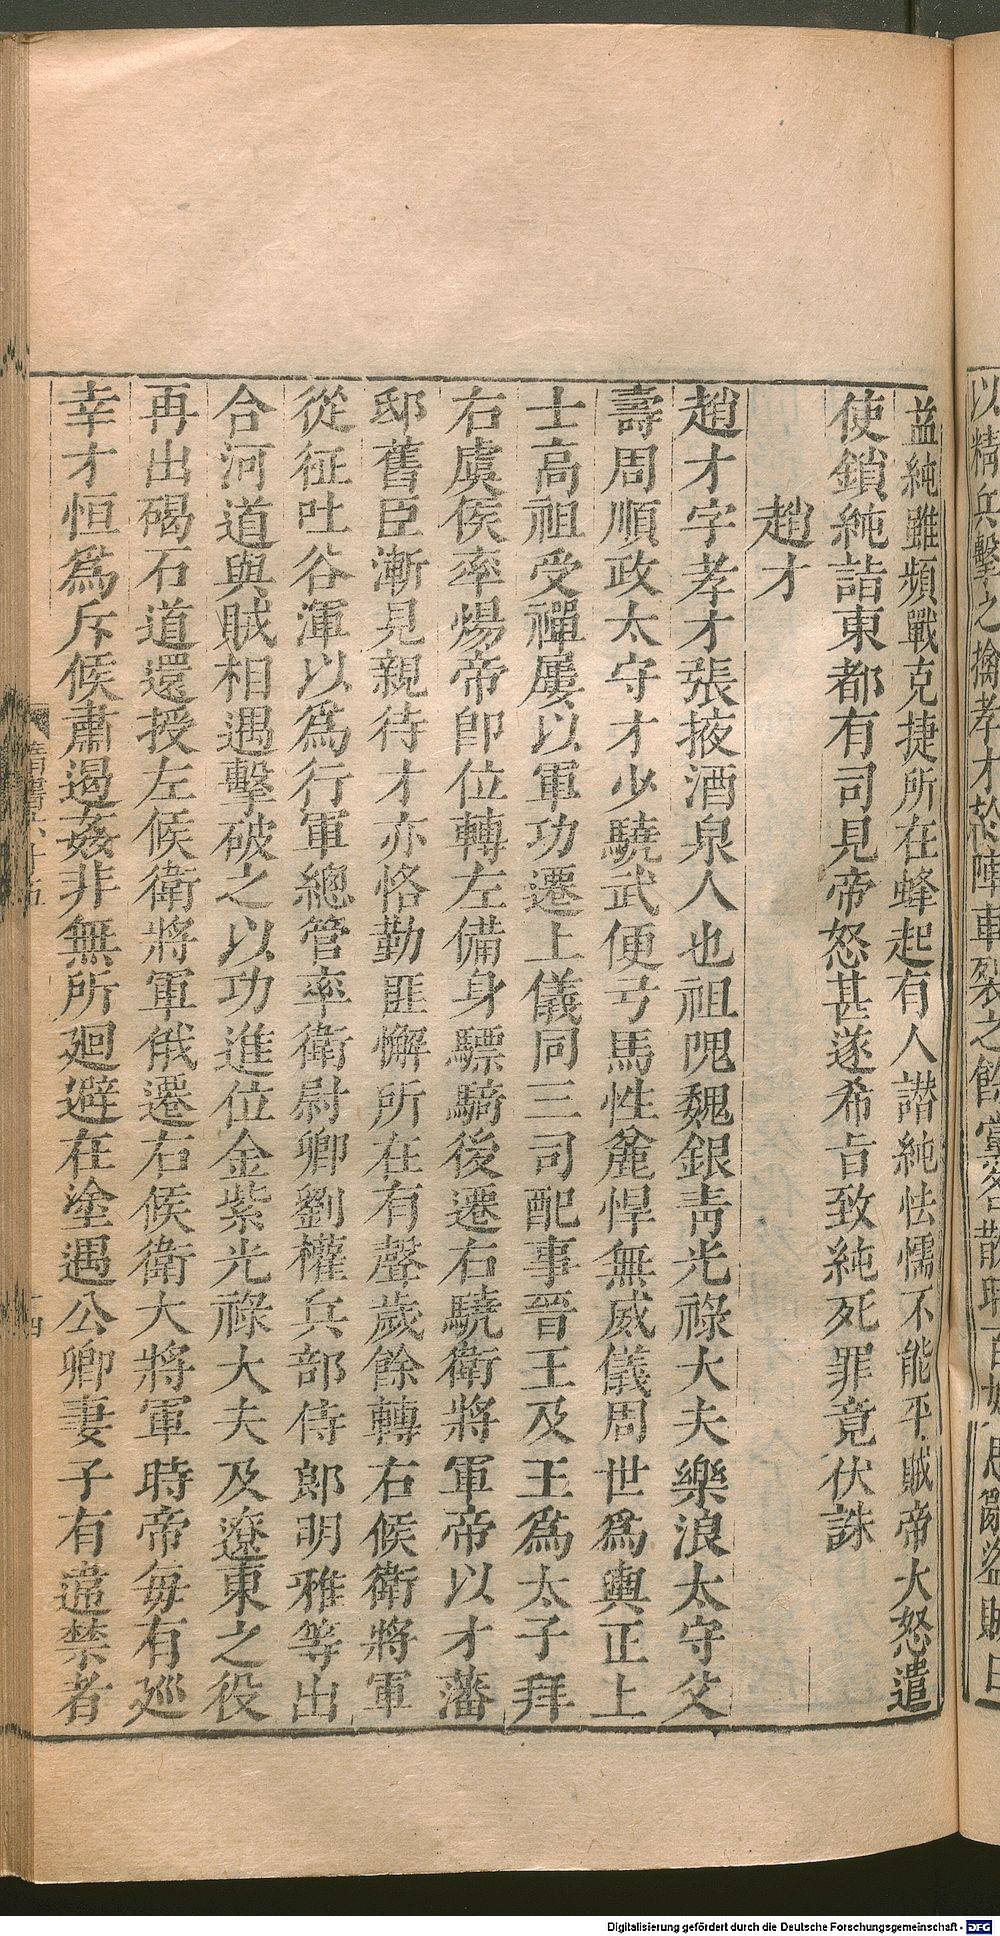 益純雖頻戰克捷所在蜂起有人譖純怯懦不能平賊帝大怒遣
使鎖純詣東都有司見帝怒甚遂希旨致純死罪竟伏誅
趙才
趙才字孝才張掖酒泉人也祖隗魏銀靑光祿大夫樂浪太守父
壽周順政太守才少驍武便弓馬性麄悍無威儀周世爲輿正上
士高祖受禪屢以軍功遷上儀同三司配事晉王及王爲太子拜
右虞候率煬帝卽位轉左備身驃騎後遷右驍衛將軍帝以才藩
邸舊臣漸見親待才亦恪勤匪懈所在有聲歲餘轉右候衛將軍
從征吐谷渾以爲行軍總管率衛尉卿劉權兵部侍郎明雅等出
合河道與賊相遇擊破之以功進位金紫光祿大夫及遼東之役
再出碣石道還授左候衛將軍俄遷右候衛大將軍時帝每有廵
幸才恒爲斥候肅遏姦非無所迴避在塗遇公卿妻子有違禁者
以精兵擊之擒孝才於陣車裂之餘黨各散
Digitalisierung gefördert durch die Deutsche Forschungsgemeinschaft - DFG